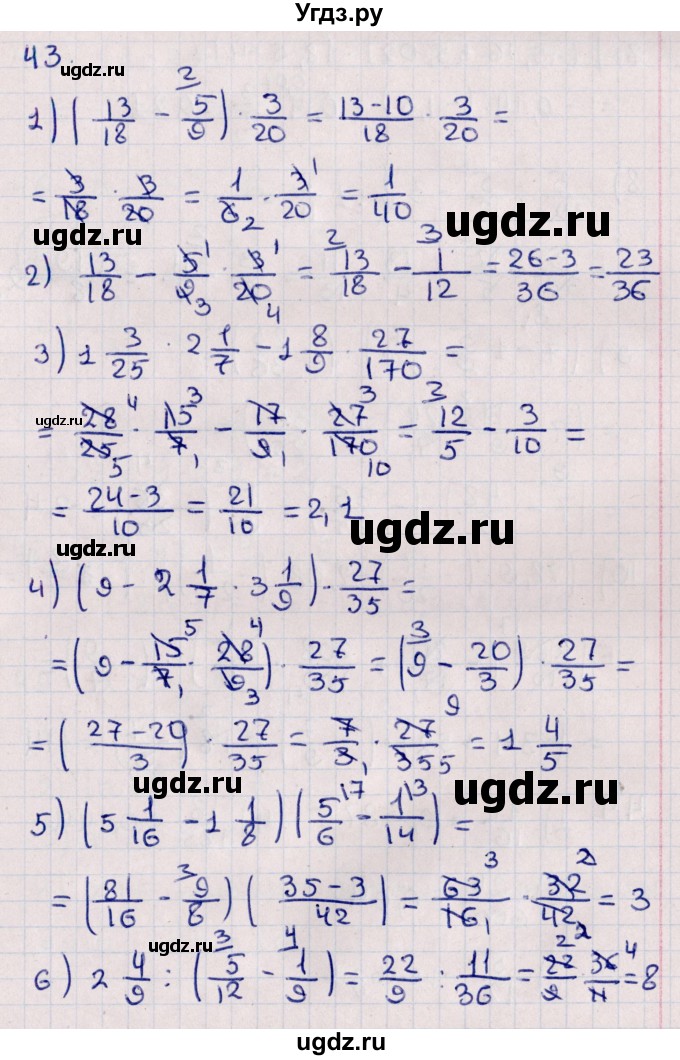 Угдз.ру
43
ugdz.ru
1) (13/18 - 5/9 ²) · 3/20 = (13-10)/18 · 3/20 =
= 3/18 · 3/20 = 1/6₂ · 3¹/20 = 1/40
ugdz.ru
ugdz.ru
2) 13/18 - 5¹/9₃ · 3¹/20₄ = ²13/18 - ³1/12 = (26-3)/36 = 23/36
ugdz.ru
3) 1 3/25 · 2 1/7 - 1 8/9 · 27/170 =
ugdz.ru
= 28⁴/25₅ · 15³/7₁ - 17/9₁ · 27³/170₁₀ = ³12/5 - 3/10 =
= (24-3)/10 = 21/10 = 2,1
ugdz.ru
ugdz.ru
4) (9 - 2 1/7 · 3 1/9) · 27/35 =
= (9 - 15⁵/7₁ · 28⁴/9₃) · 27/35 = (³9 - 20/3) · 27/35 =
ugdz.ru
= (27-20)/3) · 27/35 = 7/3₁ · 27⁹/35₅ = 1 4/5
ugdz.ru
ugdz.ru
5) (5 1/16 - 1 1/8) (5/6 ¹⁷ - 1/14 ¹³) =
= (81/16 - ³9/8) ((35-3)/42) = 63³/16₁ · 32²/42₂ = 3
ugdz.ru
6) 2 4/9 : (³5/12 - ⁴1/9) = 22/9 : 11/36 = ²22/9 · 36⁴/11 = 8
ugdz.ru
ugdz.ru